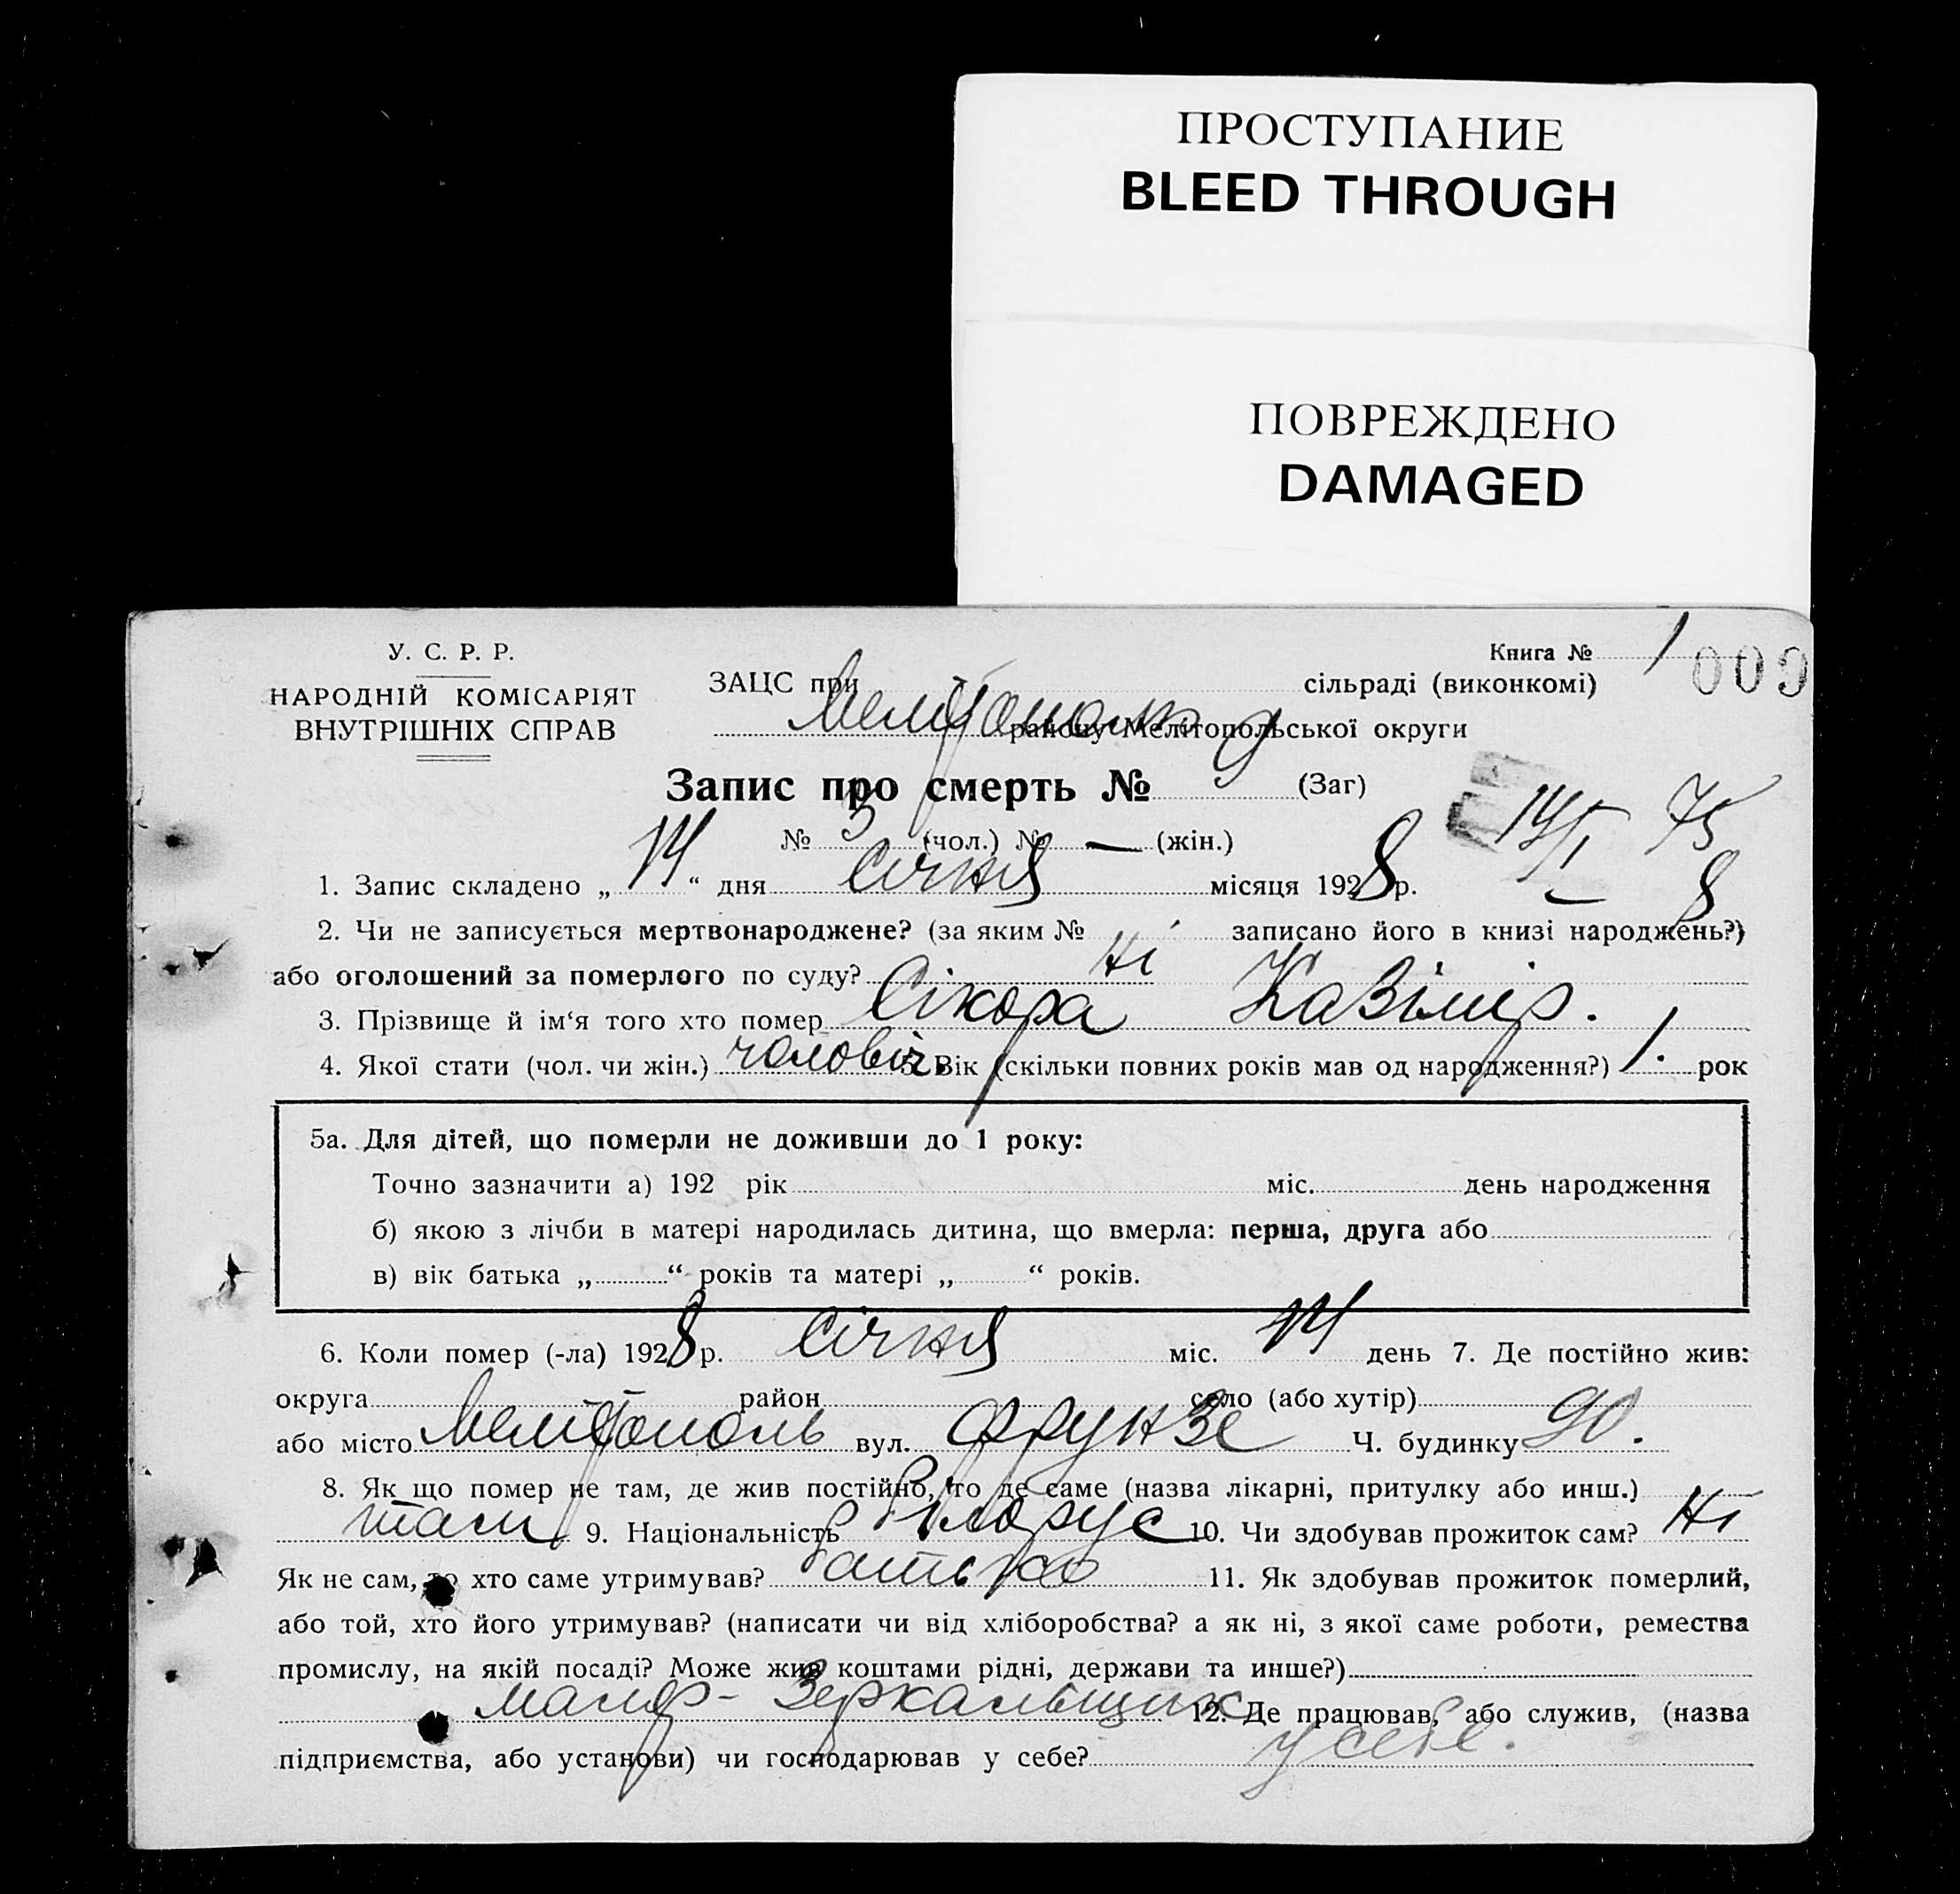 ПРОСТУПАНИЕ
BLEED THROUGH
ПОВРЕЖДЕНО
DAMAGED
У. С. Р. Р.
НАРОДНІЙ КОМІСАРІЯТ
ВНУТРІШНІХ СПРАВ
Книга № 1
009
ЗАЦС при Мелітополь сільраді (виконкомі)
району Мелітопольської округи
Запис про смерть № 9 (Заг)
№ 5 (чол.) № — (жін.)
14/I 75
8
1. Запис складено „14“ дня Січня місяця 1928 р.
2. Чи не записується мертвонароджене? (за яким № записано його в книзі народжень?)
або оголошений за померлого по суду? Ні
3. Прізвище й ім‘я того хто помер Сікора Казімір.
4. Якої стати (чол. чи жін.) чоловіч. 5. Вік (скільки повних років мав од народження?) 1. рок
5а. Для дітей, що померли не доживши до 1 року:
Точно зазначити а) 192 рік міс. день народження
б) якою з лічби в матері народилась дитина, що вмерла: перша, друга або
в) вік батька „ “ років та матері „ “ років.
6. Коли помер (-ла) 1928 р. Січня міс. 14 день 7. Де постійно жив:
округа район село (або хутір)
або місто Мелітополь вул. Фрунзе Ч. будинку 90.
8. Як що помер не там, де жив постійно, то де саме (назва лікарні, притулку або инш.)
там 9. Національність Білорус 10. Чи здобував прожиток сам? Ні
Як не сам, то хто саме утримував? батько 11. Як здобував прожиток померлий,
або той, хто його утримував? (написати чи від хліборобства? а як ні, з якої саме роботи, ремества
промислу, на якій посаді? Може жив коштами рідні, держави та инше?)
маляр - Зеркальщик 12. Де працював, або служив, (назва
підприємства, або установи) чи господарював у себе? у себе.